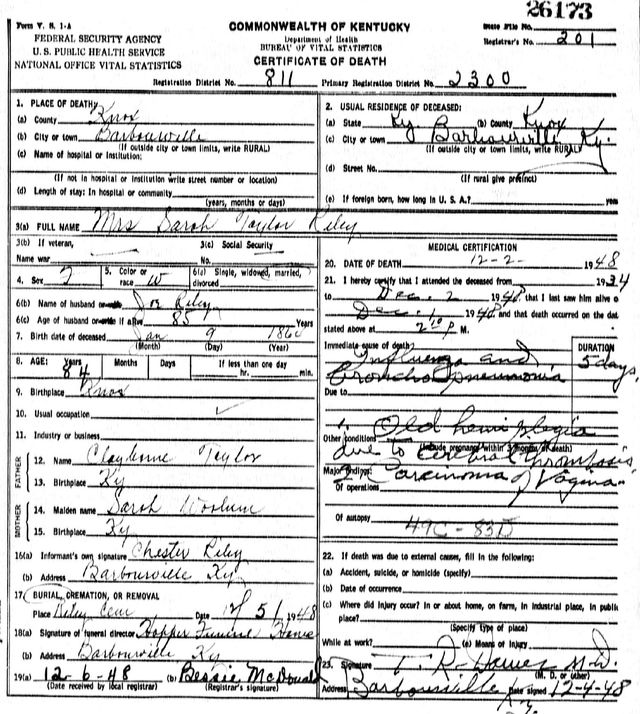 26173
Form V. S. 1-A
FEDERAL SECURITY AGENCY
U. S. PUBLIC HEALTH SERVICE
NATIONAL OFFICE VITAL STATISTICS
COMMONWEALTH OF KENTUCKY
Department of Health
BUREAU OF VITAL STATISTICS
CERTIFICATE OF DEATH
State File No.
Registrar's No. 201
Registration District No. 811 Primary Registration District No. 2300
1. PLACE OF DEATH:
(a) County Knox
(b) City or town Barbourville
(If outside city or town limits, write RURAL)
(c) Name of hospital or institution:
(If not in hospital or institution write street number or location)
(d) Length of stay: In hospital or community
(years, months or days)
2. USUAL RESIDENCE OF DECEASED:
(a) State Ky (b) County Knox
(c) City or town Barbourville Ky.
(If outside city or town limits, write RURAL)
(d) Street No.
(If rural give precinct)
(e) If foreign born, how long in U. S. A.? years
3(a) FULL NAME Mrs Sarah Taylor Riley
3(b) If veteran,
Name war
3(c) Social Security
No.
4. Sex F 5. Color or race W 6(a) Single, widowed, married, divorced
6(b) Name of husband or wife Joe Riley
6(c) Age of husband or wife if alive 85 Years
7. Birth date of deceased Jan 9
(Month) (Day) (Year)
8. AGE: Years Months Days If less than one day
84 hr. min.
9. Birthplace Knox
10. Usual occupation
11. Industry or business
FATHER
12. Name Clayborne Taylor
13. Birthplace Ky
MOTHER
14. Maiden name Sarah Woolum
15. Birthplace Ky
16(a) Informant's own signature Chester Riley
(b) Address Barbourville Ky
17. BURIAL, CREMATION, OR REMOVAL
Place Riley Cem Date 12/5/1948
18(a) Signature of funeral director Hopper Funeral Home
(b) Address Barbourville Ky
19(a) 12-6-48 (b) Bessie McDonald
(Date received by local registrar) (Registrar's signature)
MEDICAL CERTIFICATION
20. DATE OF DEATH 12-2- 1948
21. I hereby certify that I attended the deceased from 1934
to Dec. 2 1948, that I last saw him alive o
Dec. 1 1948 and that death occurred on the dat
stated above at 2:10 P M.
Immediate cause of death DURATION
Influenza and 5 days,
Bronchopneumonia
Due to
1. Old hemiplegia
Other conditions
(Include pregnancy within 3 months of death)
due to cerebral thrombosis
Major findings:
2 Carcinoma of Vagina
Of operations
Of autopsy
49C - 83D
22. If death was due to external causes, fill in the following:
(a) Accident, suicide, or homicide (specify)
(b) Date of occurrence
(c) Where did injury occur? In or about home, on farm, in industrial place, in public
place?
(Specify type of place)
While at work? (e) Means of Injury
23. Signature T. R. Davies M.D.
(M. D. or other)
Address Barbourville Ky. Date signed 12-4-48